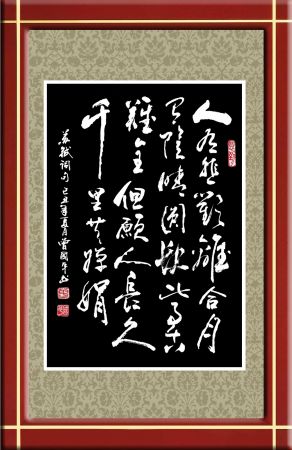 人有悲歡離合月
有陰晴圓缺此事古
難全但願人長久
千里共嬋娟
蘇軾詞句 己丑年夏月曾國